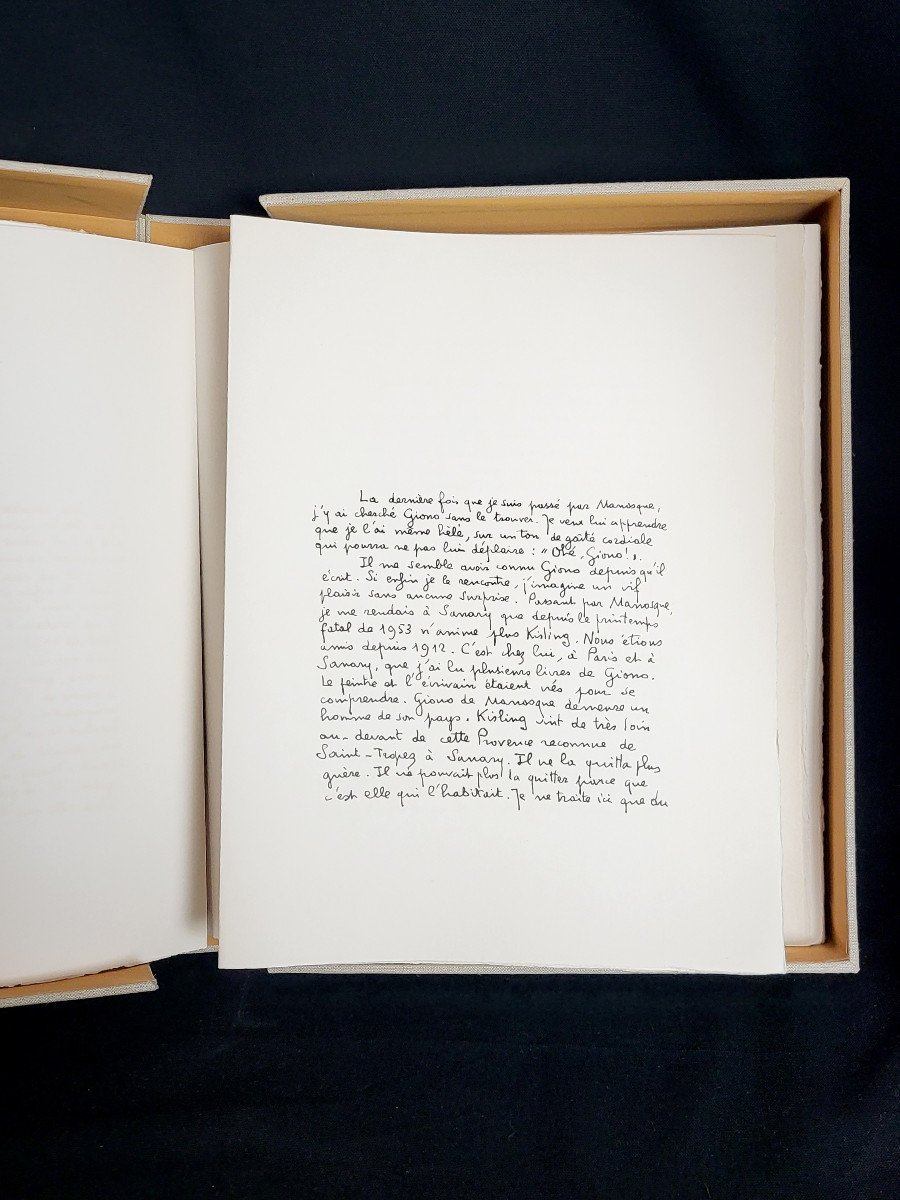 La dernière fois que je suis passé par Manosque,
j'y ai cherché Giono sans le trouver. Je veux lui apprendre
que je l'ai même hêlé, sur un ton de gaîté cordiale
qui pourra ne pas lui déplaire : "Ohé, Giono!".
Il me semble avoir connu Giono depuis qu'il
écrit. Si enfin je le rencontre, j'imagine un vif
plaisir sans aucune surprise. Passant par Manosque,
je me rendais à Sanary que depuis le printemps
fatal de 1953 n'anime plus Kisling. Nous étions
amis depuis 1912. C'est chez lui, à Paris et à
Sanary, que j'ai lu plusieurs livres de Giono.
Le peintre et l'écrivain étaient nés pour se
comprendre. Giono de Manosque demeure un
homme de son pays. Kisling vint de très loin
au-devant de cette Provence reconnue de
Saint-Tropez à Sanary. Il ne la quitta plus
guère. Il ne pouvait plus la quitter parce que
c'est elle qui l'habitait. Je ne traite ici que du